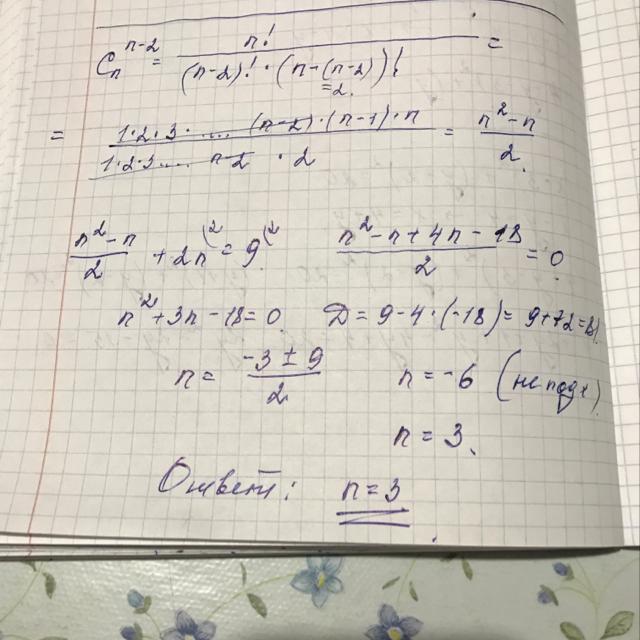 Cₙⁿ⁻² = n! / ((n-2)! · (n-(n-2))!) =
=2
= 1·2·3· .... (n-2)·(n-1)·n / 1·2·3.... n-2 · 2 = n²-n / 2
n²-n / 2 + 2n⁽² = 9⁽²
n²-n+4n-18 / 2 = 0
n²+3n-18=0 D = 9-4·(-18) = 9+72=81
n = -3 ± 9 / 2 n = -6 (не подх)
n = 3.
Ответ: n=3